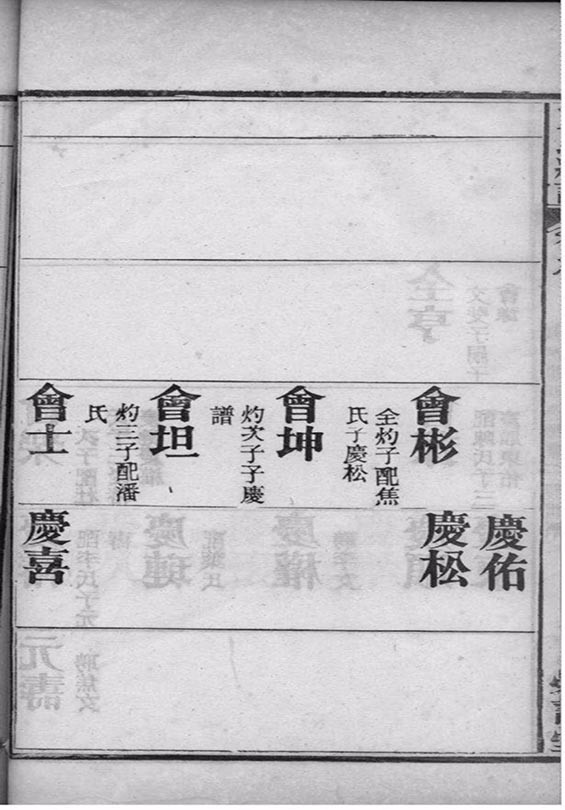 會彬
全灼子配焦
氏子慶松
會坤
灼次子子慶
譜
會坦
灼三子配潘
氏
會士
慶佑
慶松
慶喜